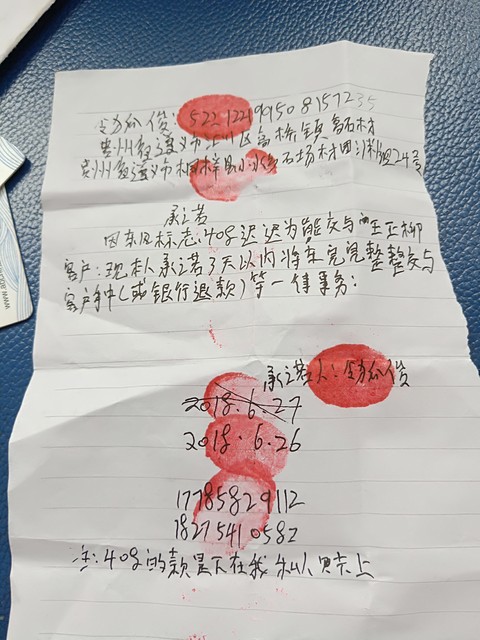 俊: 522122199508157235
贵州省遵义市汇川区高桥镇鱼石材
贵州省遵义市桐梓县小水乡石场村田沟组24号
承诺
因东风标志:408迟迟为能交与王正柳
客户:现本人承诺3天以内将车完完整整交与
客户手中(或银行退款)等一件事务:
承诺人:俊
2018.6.27
2018.6.26
17785829112
18275410582
注:408的款是下在我私人账上